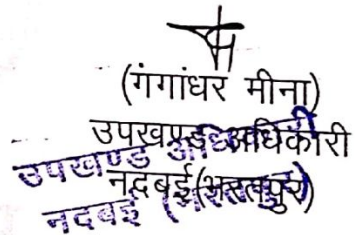 (गंगाधर मीना)
उपखण्ड अधिकारी
नदबई(भरतपुर)
उपखण्ड अधिकारी
नदबई (भरतपुर)